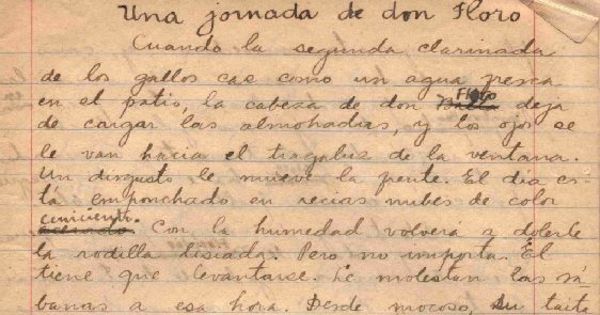 Una jornada de don Floro
Cuando la segunda clarinada
de los gallos cae como un agua fresca
en el patio, la cabeza de don Floro deja
de cargar las almohadas, y los ojos se
le van hacia el tragaluz de la ventana.
Un disgusto le mueve la frente. El día es-
tá emponchado en recias nubes de color
ceniciento. Con la humedad volverá a dolerle
la rodilla lisiada. Pero no importa. Él
tiene que levantarse. Le molestan las sá-
banas a esa hora. Desde mocoso, su taita